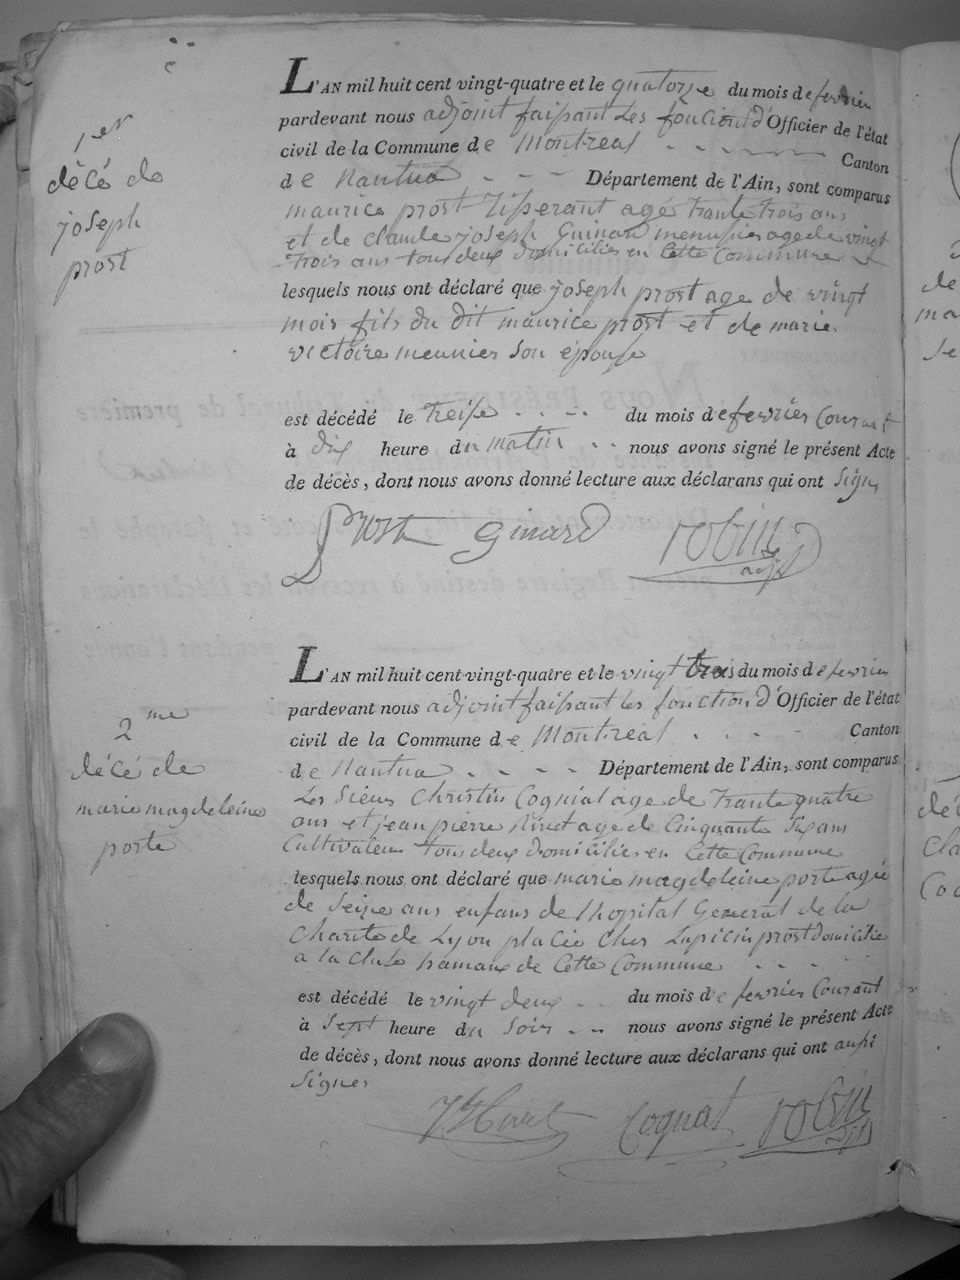 1er
décé de
joseph
prost
L'AN mil huit cent vingt-quatre et le quatorze du mois de fevrier
pardevant nous adjoint faisant Les fonctions d'Officier de l'état
civil de la Commune de Montreal Canton
de Nantua Département de l'Ain, sont comparus
maurice prost Tisserant agé trante trois ans
et de claude joseph Guinard menusier age de vingt
trois ans tous deux domiciliés en Cette Commune
lesquels nous ont déclaré que joseph prost age de vingt
mois fils du dit maurice prost et de marie
victoire meunier son épouse
est décédé le treise du mois de fevrier Courant
à dix heure du matin nous avons signé le présent Acte
de décès, dont nous avons donné lecture aux déclarans qui ont Signé
Prost Ginard robin
adj
2me
décé de
marie magdeleine
porte
L'AN mil huit cent vingt-quatre et le vingt trois du mois de fevrier
pardevant nous adjoint faisant les fonction d'Officier de l'état
civil de la Commune de Montréal Canton
de Nantua Département de l'Ain, sont comparus
Les Sieurs Christin Cognial age de trante quatre
ans et jean pierre agé de Cinquante Six ans
Cultivateur tous deux domiciliés en Cette Commune
lesquels nous ont déclaré que marie magdeleine porte agé
de Seize ans enfans de l'hopital General de la
Charité de Lyon placée Ches Lupicin prost domicilié
a la Cluse hamaux de Cette Commune
est décédé le vingt deux du mois de fevrier Courant
à Sept heure du Soir nous avons signé le présent Acte
de décès, dont nous avons donné lecture aux déclarans qui ont aussi
Signer
Cognat robin
adj